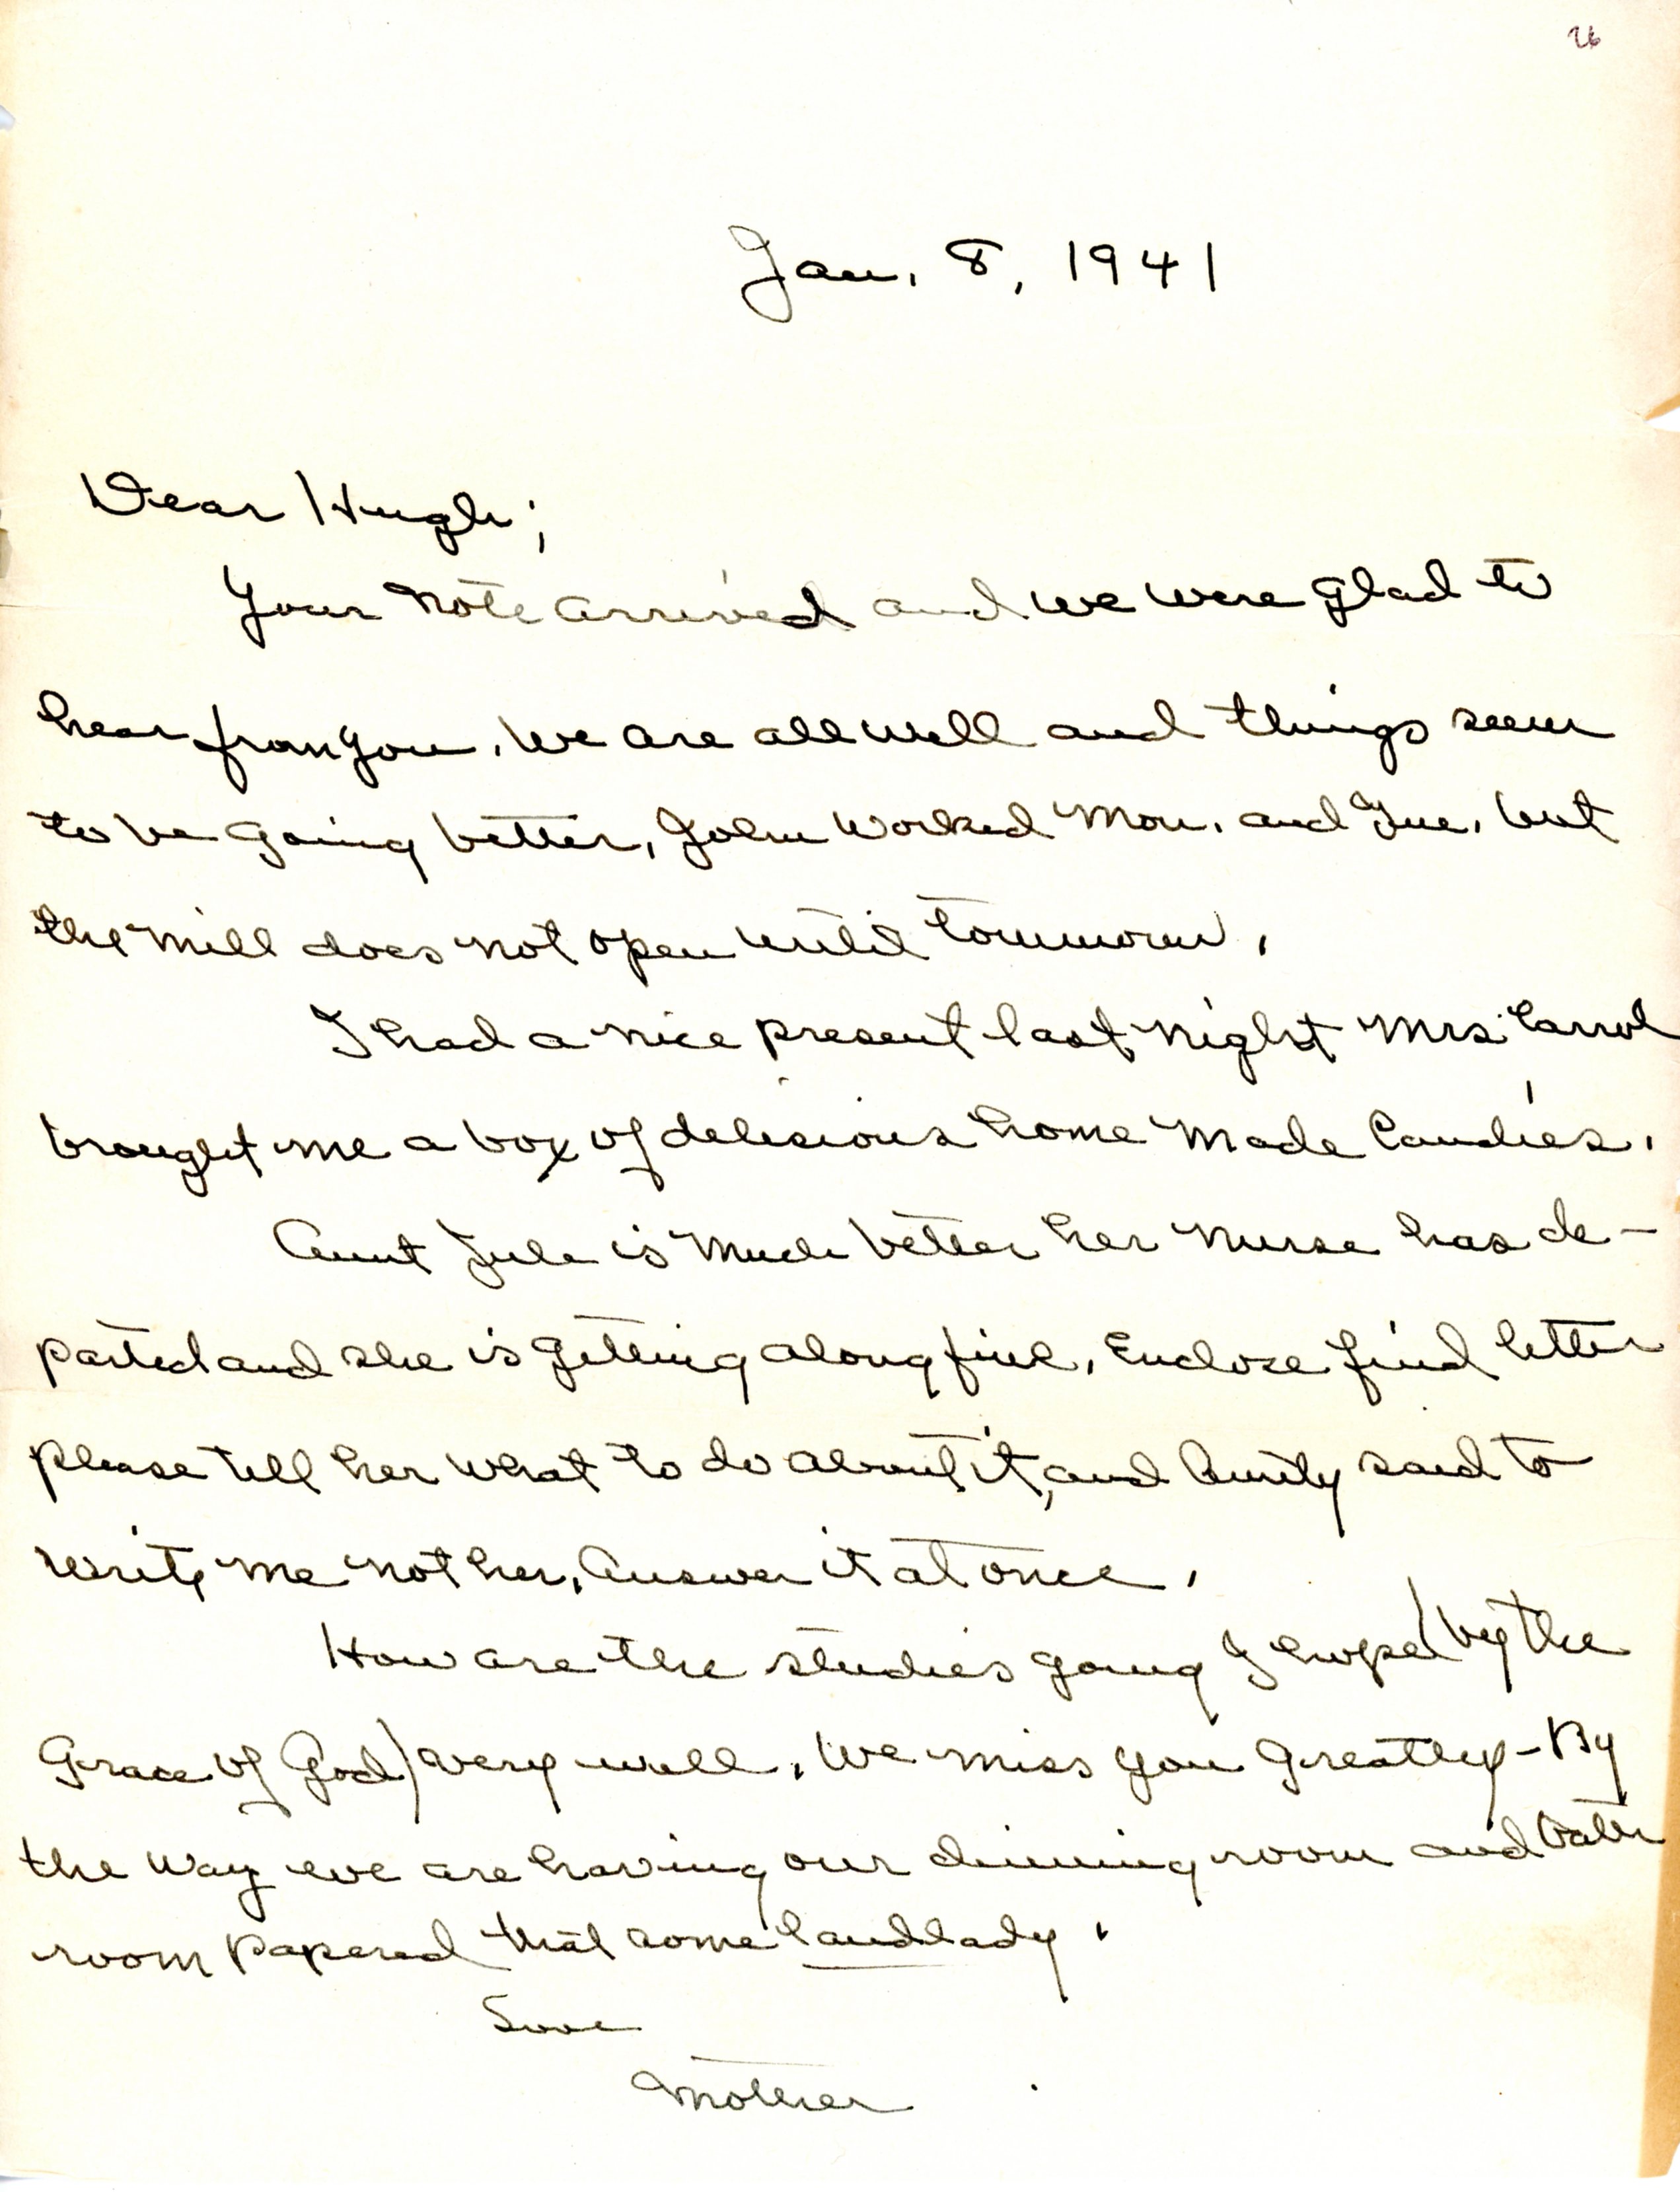 26
Jan. 8, 1941
Dear Hugh;
Your note arrived and we were glad to
hear from you. We are all well and things seem
to be going better, John worked Mon. and Tue. but
the mill does not open until tommorow.
I had a nice present last night Mrs. Carrol
brought me a box of delicious home made Candies.
Aunt Jule is much better her nurse has de-
parted and she is getting along fine. Enclose find letter
please tell her what to do about it, and Aunty said to
write me not her. Answer it at once.
How are the studies going I hope (by the
Grace of God) very well. We miss you greatly - By
the way we are having our dinning room and bath
room papered that some landlady.
Love
Mother